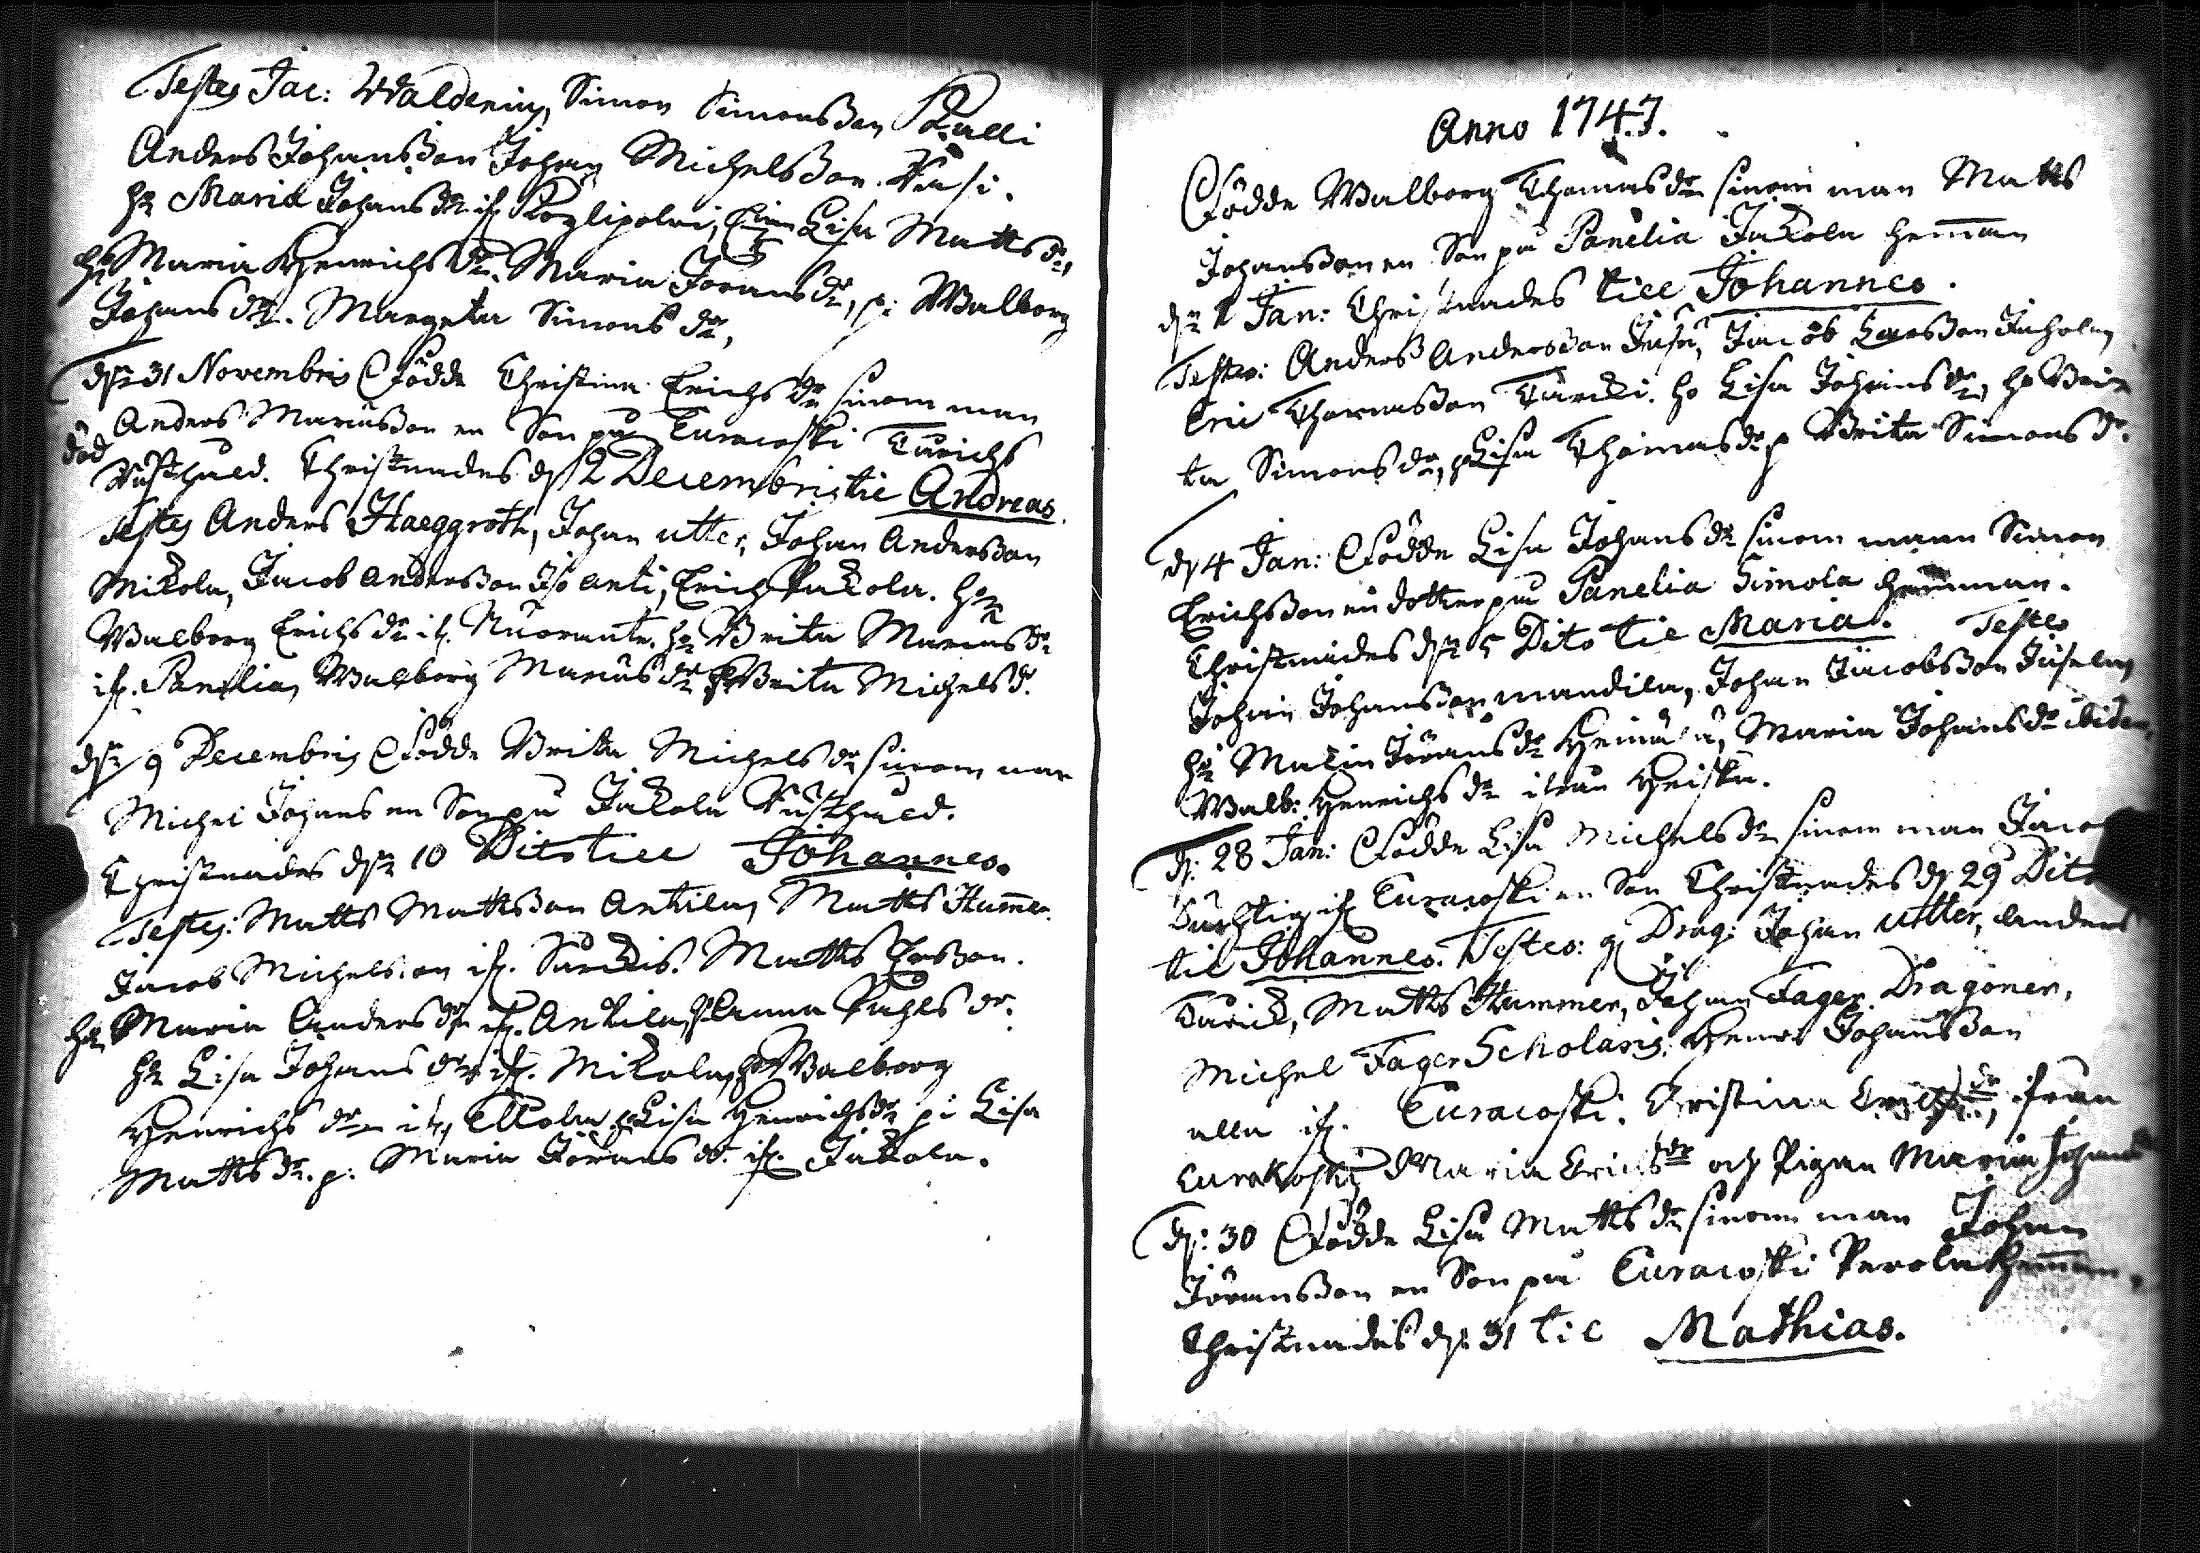 Testes Jac: Waldenius, Simon Simonsson Kulli
Anders Johansson Johan Michelsson
hr Maria Johans dr if. Lisa Matts dr,
hr Maria Henrichs dr. Maria Jörans dr, p: Walborg
Johans dr. Margeta Simons dr,
dn 31 Novembris Födde Christina Erichs dr sinom man
Anders Mariusson en Son på Euracoski Turichs
död
Rusthåld. Christnades d 2 Decembris til Andreas.
Testes Anders Haeggroth, Johan Utter, Johan Andersson
Mikola, Jacob Andersson Iso Anti, Erich Pukola. hr
Walborg Erichs dr if. Nuoranti. hr Brita Marius dr
if. Panelia, Walborg Marius dr p Brita Michels dr.
dn 9 Decembris Födde Brita Michels dr sinom man
Michel Johans en Son på Jakola Rusthåld.
Christnades dn 10 Dito till Johannes.
Testes: Matts Mattsson Antila, Matts Hummer.
Jacob Michelsson if. Matts Ersson.
hr Maria Anders dr if. Antila, Anna Påhls dr.
hr Lisa Johans dr if. Mikola, hr Walborg
Henrichs dr if. Lisa Henrichs dr pi Lisa
Matts dr. p: Maria Jörans dr. if. Jakola.
Anno 1747.
Födde Walborg Thomas dr sinom man Matts
Johansson en Son på Panelia Jakola hemman
dn 1 Jan: Christnades till Johannes.
Testes: Anders Andersson Jusu, Jacob Larsson
Eric Thomasson Turcki. hr Lisa Johans dr, hr Bri
ta Simons dr, p Lisa Thomas dr p Brita Simons dr.
d 4 Jan: Födde Lisa Johans dr sinom man Simon
Erichsson en dotter på Panelia Simola hemman.
Christnades dn 5 Dito til Maria. Testes
Johan Johansson Mandila, Johan Jacobsson
hr Malin Jörans dr Maria Johans dr ibidem,
Walb: Henrichs dr ifrån Heiska.
d: 28 Jan: Födde Lisa Michels dr sinom man Jaco
if Euracoski en Son Christnades d 29 Dito
til Johannes. Testes: Drag: Johan Utter, Anders
Turick, Matts Hummer, Johan Fager Dragoner,
Michel Fager Scholaris. Henr. Johansson
alla if. Euracoski. Christina Erichs dr, ifrån
Eurakoski Maria Erichs dr och Pigan Maria Johans
d: 30 Födde Lisa Matts dr sinom man Johan
Jöransson en Son på Euracoski Perola hemman.
Christnades d: 31 til Mathias.